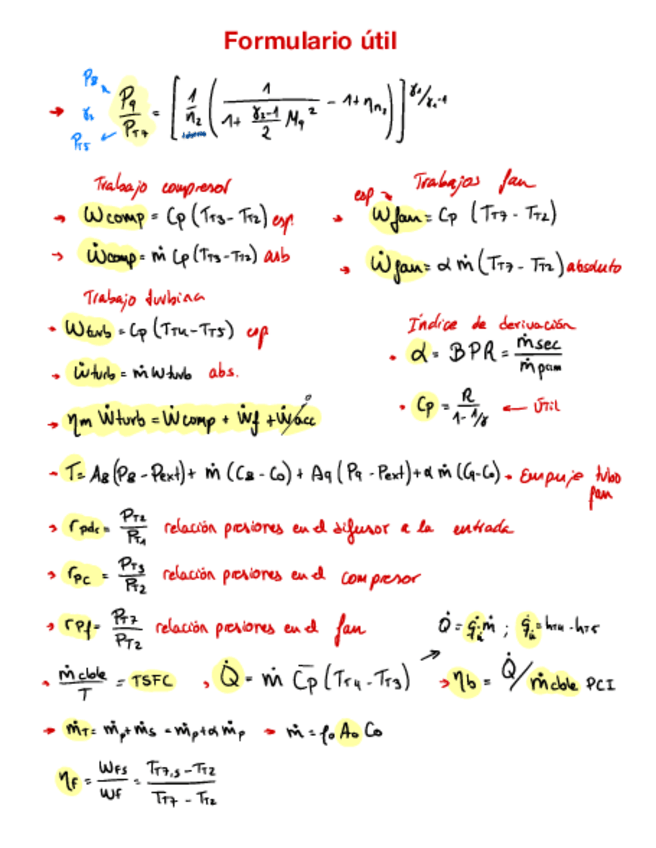 Formulario útil
P8 γ2 PT5 → P9/PT7 = [1/η2 (1/(1+ (γ2-1)/2 M9²) - 1+ηn2)]^γ2/γ2-1
Trabajo compresor
→ Wcomp = Cp (TT3-TT2) esp.
→ Ẇcomp = ṁ Cp (TT3-TT2) asb
Trabajos fan
esp → Wfan = Cp (TT7 - TT2)
→ Ẇfan = α ṁ (TT7 - TT2) absoluto
Trabajo turbina
· Wturb = Cp (TT4-TT5) esp
→ Ẇturb = ṁ Wturb abs.
→ ηm Ẇturb = Ẇcomp + Ẇf + Ẇacc 0
Índice de derivación
· α = BPR = ṁsec/ṁpam
· Cp = R/(1-1/γ) ← ÚTIL
→ T = A8(P8-Pext) + ṁ (C8-C0) + A9 (P9-Pext) + α ṁ (C9-C0) → Empuje tubo fan
→ rpdc = PT2/PT1 relación presiones en el difusor a la entrada
→ rpc = PT3/PT2 relación presiones en el compresor
→ rpf = PT7/PT2 relación presiones en el fan
Q̇ = q̇ ṁ ; q̇ = hT4 - hT5
· ṁcble/T = TSFC → Q̇ = ṁ C̄p (TT4-TT3) → ηb = Q̇/ṁcble PCI
→ ṁT = ṁp+ṁs = ṁp+α ṁp → ṁ = ρ0 A0 C0
ηF = WFS/WF = (TT7,S-TT2)/(TT7-TT2)